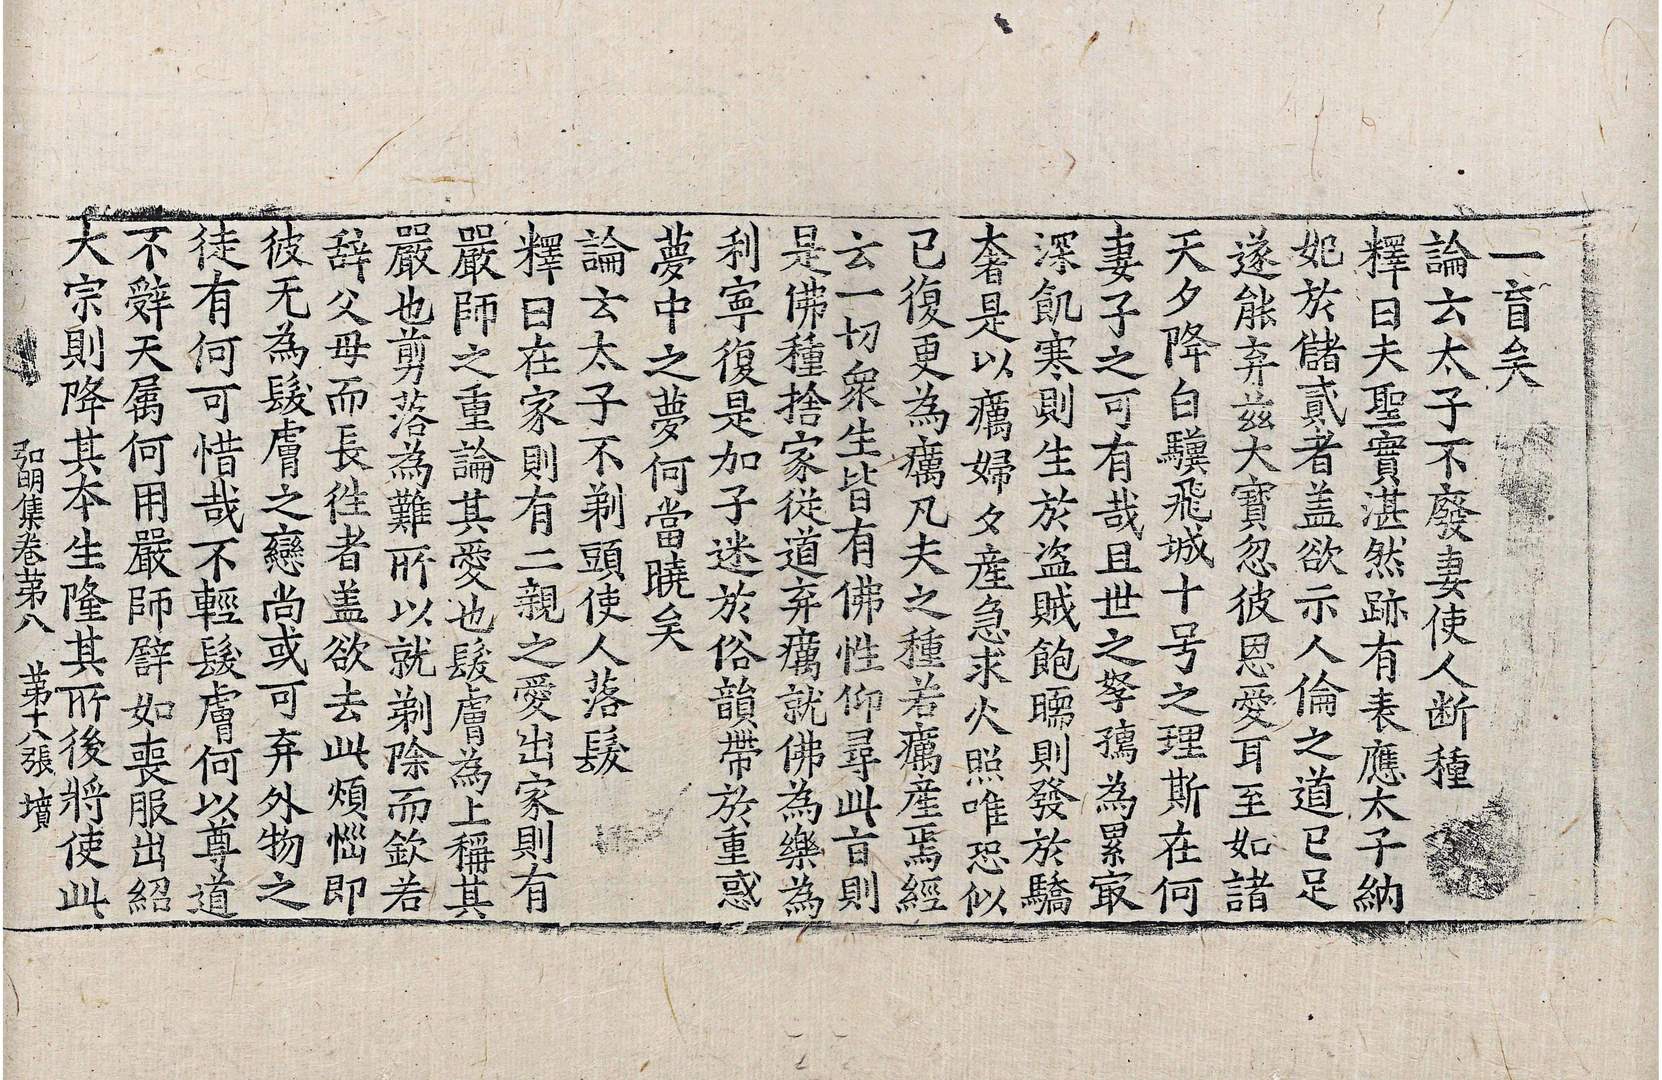 一盲矣
論云太子不廢妻使人断種
釋曰夫聖實湛然跡有表應太子納
妃於儲貳者盖欲示人倫之道已足
遂能弃兹大寶忽彼恩愛耳至如諸
天夕降白驥飛城十号之理斯在何
妻子之可有哉且世之孥孺為累㝡
深飢寒則生於盗賊飽暖則發於驕
奢是以癘婦夕産急求火照唯恐似
已復更為癘凡夫之種若癘産焉經
云一切衆生皆有佛性仰尋此言則
是佛種捨家從道弃癘就佛為樂為
利寧復是加子迷於俗韻帶於重惑
夢中之夢何當曉矣
論云太子不剃頭使人落髮
釋曰在家則有二親之愛出家則有
嚴師之重論其愛也髮膚為上稱其
嚴也剪落為難所以就剃除而欽若
辞父母而長徃者盖欲去此煩惱即
彼无為髮膚之戀尚或可弃外物之
徒有何可惜哉不輕髮膚何以尊道
不辤天属何用嚴師辟如喪服出紹
大宗則降其本生隆其所後將使此
弘明集卷苐八　苐十八張　墳